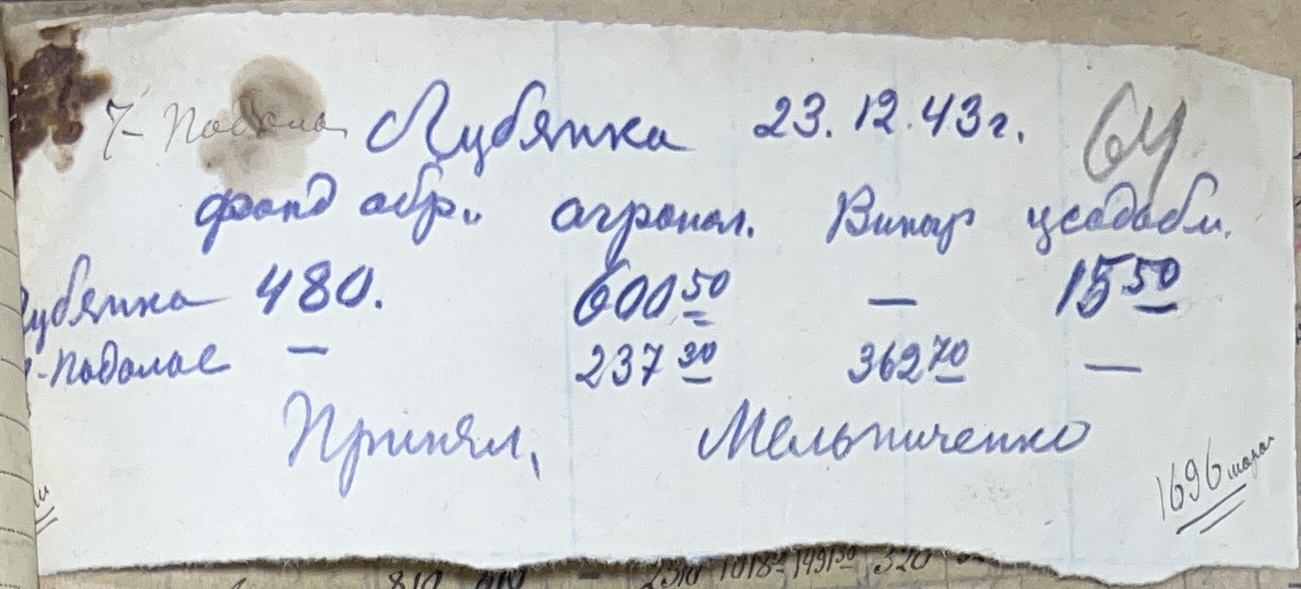 7- Подола Лубянка 23.12.43г. 64
фонд обр.. агропом. Винар усадобм.
Лубянка 480. 600 50 — 15 50
-Подолае — 237 30 362 70 —
Принял, Мельниченко
1696
810 2310 1018 1491 30 320